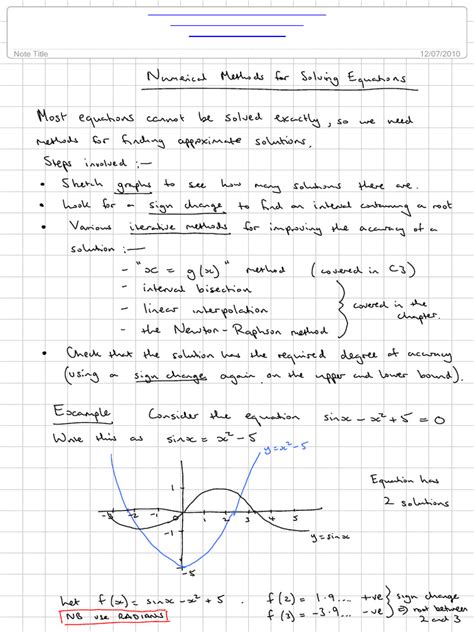 Note Title
12/07/2010
Numerical Methods for Solving Equations
Most equations cannot be solved exactly, so we need
methods for finding approximate solutions.
Steps involved :—
• Sketch graphs to see how many solutions there are.
• Look for a sign change to find an interval containing a root
• Various iterative methods for improving the accuracy of a
solution :—
- "x = g(x)" method (covered in C3)
- interval bisection
- linear interpolation
- the Newton-Raphson method
} covered in the
chapter.
• Check that the solution has the required degree of accuracy
(using a sign change again on the upper and lower bound).
Example Consider the equation sinx - x² + 5 = 0
Write this as sinx = x² - 5
y = x² - 5
Equation has
2 solutions
1
-3 -2 -1 0 1 2 3 4 5
y = sinx
-5
Let f(x) = sinx - x² + 5. f(2) = 1.9... +ve } sign change
NB use RADIANS f(3) = -3.9... -ve } ⇒ root between
2 and 3